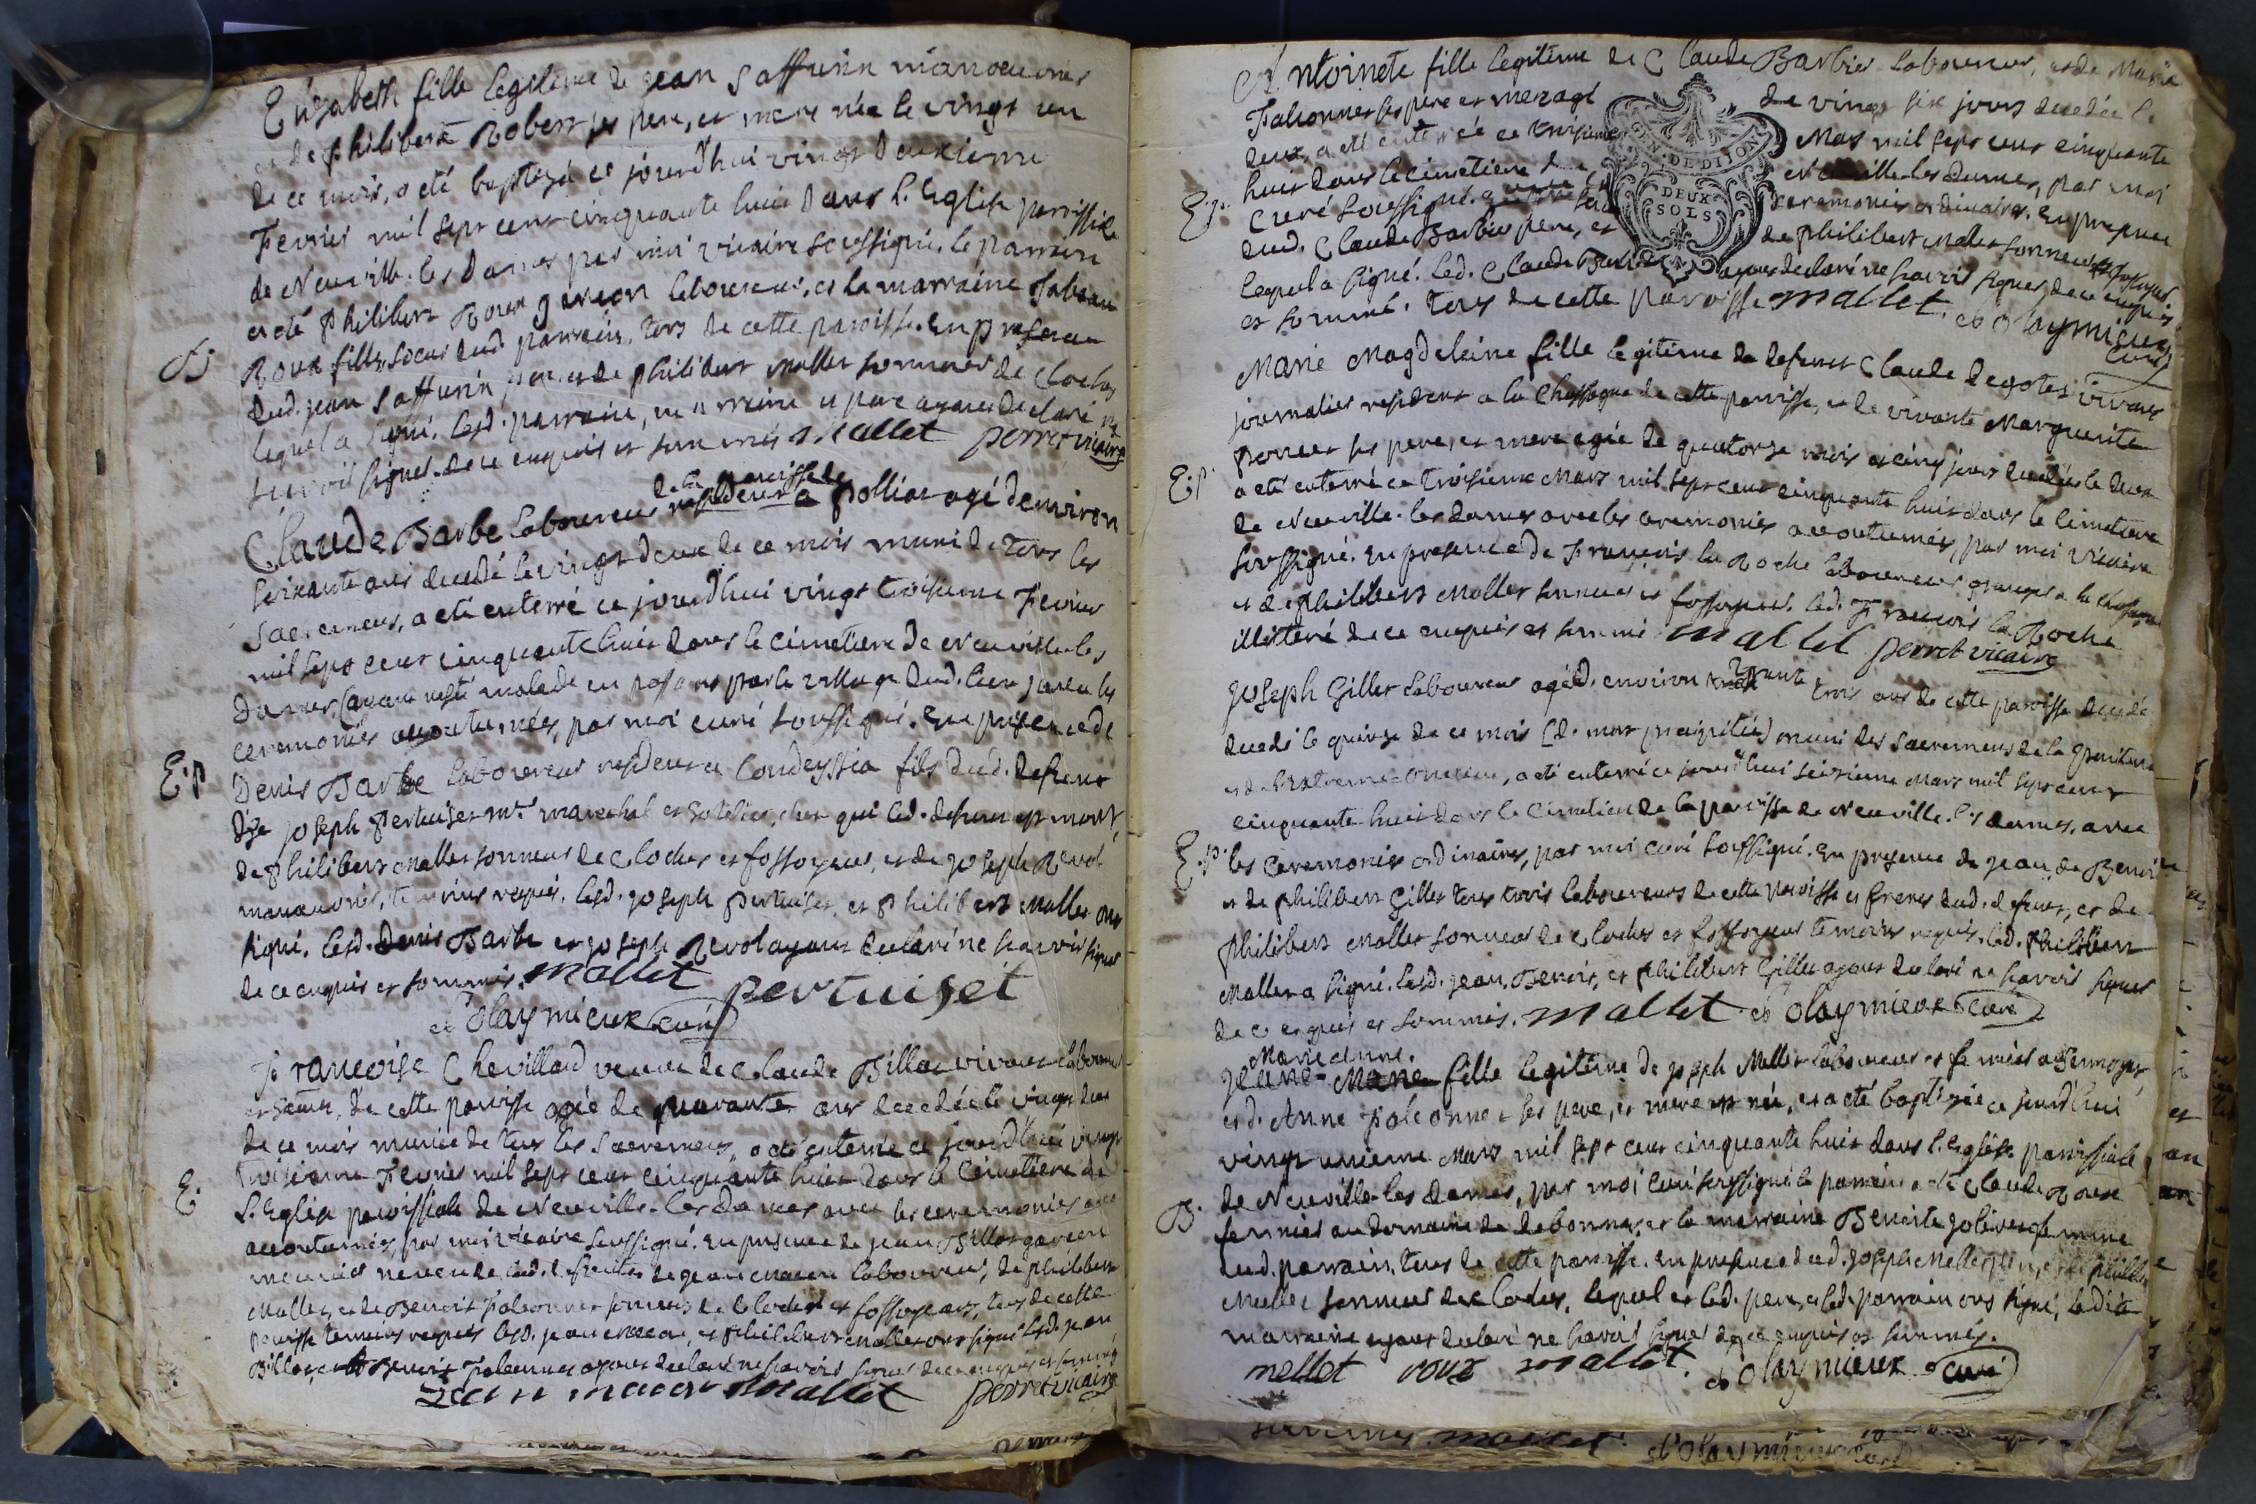 Elizabeth fille legitime de jean Saffurin manoeuvrier
et de philiberte Robert ses pere, et mere née le vingt un
de ce mois, a été baptisée ce jourd'hui vingt deuxieme
Fevrier mil sept cent cinquante huit dans l'Eglise paroissiale
de Neuville-les Dames par moi vicaire soussigné. le parrein
a été philibert Roux laboureur, et la marraine
Roux fille, soeur dud. parrein, tous de cette paroisse. En presence
B
dud. jean Saffurin pere et de philibert Mallet sonneur de cloches
lequel a signé. lesd. parrain, marraine et pere ayant declaré ne
savoir signer de ce enquis et sommés Mallet perret vicaire
de la paroisse de
Claude Barbe laboureur residant a polliat agé d'environ
soixante ans decedé le vingt deux de ce mois muni de tous les
Sacremens, a eté enterré ce jourd'hui vingt troisieme Fevrier
mil sept cent cinquante huit dans le cimetiere de Neuville les
Dames, (ayant resté malade en passant par le village dud. lieu) avec les
ceremonies accoutumées, par moi curé soussigné. En presence de
E:p
Denis Barbe laboureur residant a Condeyssia fils dud. defunt
de joseph Pertuiset me. marechal et hotelier, chez qui led. defunt est mort,
de philibert Mallet sonneur de cloches et fossoyeur, et de joseph Revol
manoeuvrier, temoins requis. lesd. joseph pertuiset, et philibert Mallet ont
signé. lesd. Denis Barbe et joseph Revol ayant declaré ne sçavoir signer
de ce enquis et sommés. Mallet pertuiset
d'Olaymieux curé
Francoise Chevillard veuve de Claude Billot vivant laboureur
de cette paroisse agée de quarante ans decedée le vingt deux
de ce mois munie de tous les Sacremens, a été enterrée ce jourd'hui vingt
troisieme Fevrier mil sept cent cinquante huit dans le Cimetiere de
E.
l'Eglise paroissiale de Neuville-les Dames avec les ceremonies
accoutumées, par moi vicaire soussigné. En presence de jean Billot garcon
meunier neveu de lad. defunte, de jean laboureur, de philibert
Mallet, et de Benoit Falconnet sonneurs de cloches et fossoyeurs, tous de cette
paroisse temoins requis lesd. jean et philibert Mallet ont signé lesd. jean
Billot et Benoit Falconnet ayant declaré ne sçavoir signer de ce enquis et sommés
Mallet perret vicaire
Antoinete fille legitime de Claude Barbier laboureur, et de Marie
Falconnet ses pere et mere agé de vingt six jours decedée le
deux, a été enterrée ce troisieme Mars mil sept cent cinquante
huit dans le cimetiere de Neuville-les dames, par moi
E.p.
Curé soussigné. ceremonies ordinaires. En presence
dud. Claude Barbier pere, et de philibert Mallet sonneur
lequel a signé. led. Claude Barbier ayant declaré ne sçavoir signer de ce enquis
et sommé. tous de cette paroisse Mallet. d'Olaymieux
curé
GN. DE DIJON
DEUX
SOLS
Marie Magdeleine fille legitime de defunt Claude Degotes vivant
journalier resident a la Chassagne de cette paroisse, et de vivante Marguerite
poncet ses pere, et mere agée de quatorze mois et cinq jours decedée le deux
E:p
a eté enterré ce troisieme Mars mil sept cent cinquante huit dans le Cimetiere
de Neuville-les dames avec les ceremonies accoutumées, par moi vicaire
soussigné. En presence de François la Roche laboureur granger a la Chassagne
et de philibert Mallet sonneur et fossoyeur. led. François la Roche
illiteré de ce enquis et sommé Mallet perret vicaire
joseph Gillet laboureur agé d'environ trente trois ans de cette paroisse decedé
le quinze de ce mois (d. mort precipitée) muni des Sacremens de la penitence
et de l'extreme-onction, a été enterré ce jourd'hui seizieme Mars mil sept cent
cinquante huit dans le Cimetiere de la paroisse de Neuville-les dames, avec
E.p.
les Ceremonies ordinaires, par moi curé soussigné. En presence de jean, de Benoit
et de philibert Gillet tous trois laboureurs de cette paroisse et freres dud. defunt, et de
philibert Mallet sonneur de cloches et fossoyeur temoins requis. led. philibert
Mallet a signé. lesd. jean, Benoit, et philibert Gillet ayant declaré ne sçavoir signer
de ce enquis et sommés. Mallet d'Olaymieux curé
Marie Anne.
Jeane-Marie fille legitime de joseph Mellet laboureur et fermier
et d'Anne falconnet ses pere, et mere est née, et a été baptisée ce jourd'hui
vingt unieme Mars mil sept cent cinquante huit dans l'Eglise paroissiale
B.
de Neuville-les dames, par moi Curé soussigné le parrain a été Claude Roux
fermier au domaine de et la marraine Benoite jolivet femme
dud. parrain, tous de cette paroisse. En presence dud. joseph Mellet pere, et de philibert
Mallet sonneur des cloches, lequel et led. pere, et led. parrain ont signé, ladite
marraine ayant declaré ne sçavoir signer de ce enquis et sommés.
mellet roux mallet. d'Olaymieux curé
mallet.